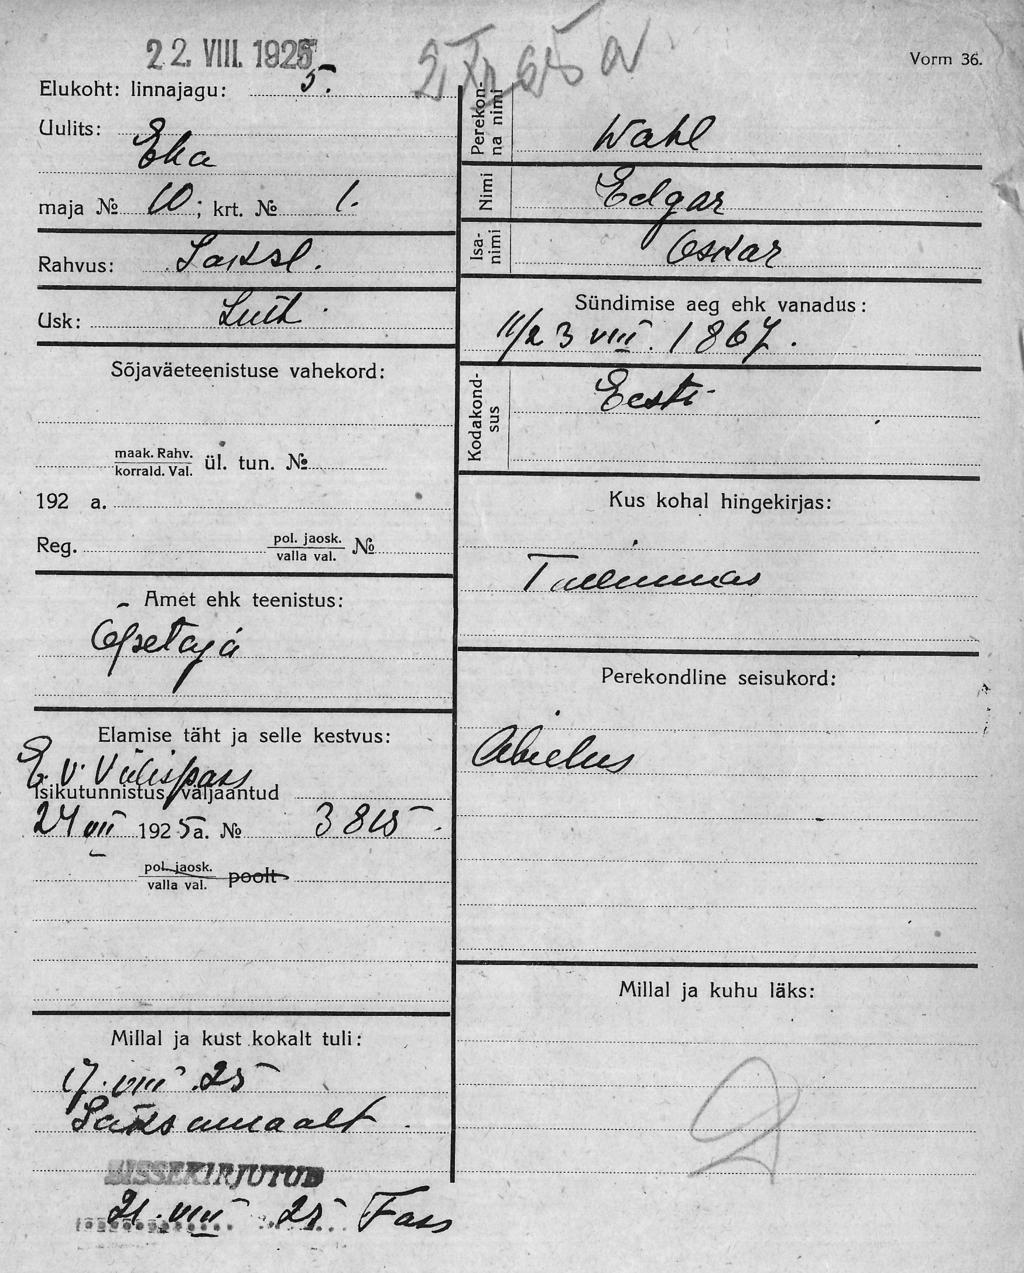 22. VIII. 1925
Vorm 36.
Elukoht: linnajagu: 5.
Uulits:
Eha
maja № 10; krt. № 1.
Rahvus: Saksl.
Usk: Luth.
Sõjaväeteenistuse vahekord:
maak. Rahv.
korrald. Val. ül. tun. №
192 a.
Reg. pol. jaosk.
valla val. №
Amet ehk teenistus:
Õpetaja
Elamise täht ja selle kestvus:
E. V. Välispass
Isikutunnistus väljaantud
24 VII 1925 a. № 3815.
pol. jaosk.
valla val. poolt
Millal ja kust kokalt tuli:
17. VIII 25
Saksamaalt.
SISSEKIRJUTUD
21. VIII 25 Fass
Perekon-
na nimi Wahl
Nimi Edgar
Isa-
nimi Oskar
Sündimise aeg ehk vanadus:
11/23 VIII. 1867.
Kodakond-
sus Eesti
Kus kohal hingekirjas:
Tallinnas
Perekondline seisukord:
Abielus
Millal ja kuhu läks: